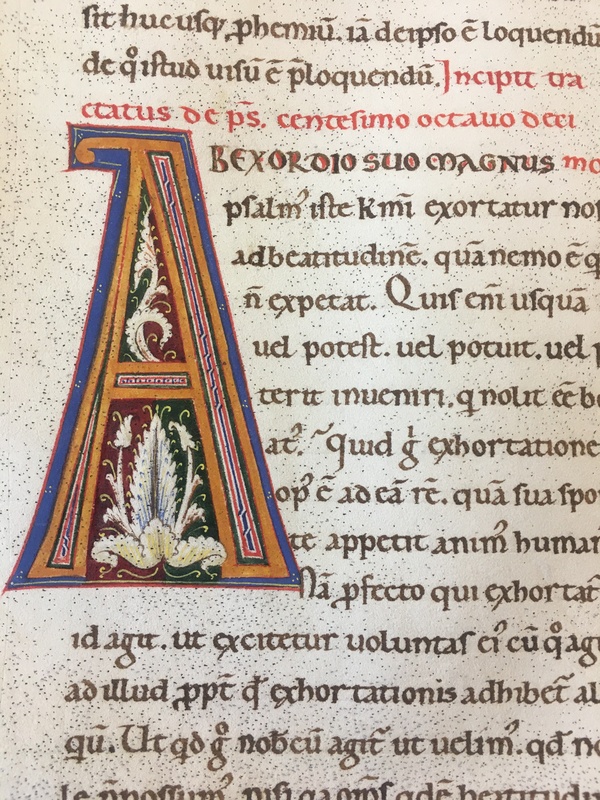 sit hucusq; ꝓhemiũ. iã deipso ẽ loquendũ
de qͥ istud uisũ ẽ p̃loquendũ. Incipit tra
ctatus de ps̃. centesimo octauo deci
ABEXORDIO SUO MAGNUS mo
psalmꝰ iste kmĩ exortatur nos
adbeatitudinẽ. quã nemo ẽ q
ñ expetat. Quis eni͂ usquã
uel potest. uel potuit. uel p
terit inueniri. q nolit eẽ be
at᷒. Quid gͥ exhortatione
opꝰ ẽ ad eã rẽ. quã sua spo
te appetit animꝰ human
Nã ꝓfecto qui exhortat᷒
id agit. ut excitetur uoluntas eiꝰ cũ qͦ ag
ad illud ꝓpt̃ qđ exhortationis adhibet᷒ al
qũ. Ut qd gͦ nobcũ agit᷒ ut uelimꝰ. qđ no
le ñpossumꝰ nisi qa om̃s qdẽ beatitudin